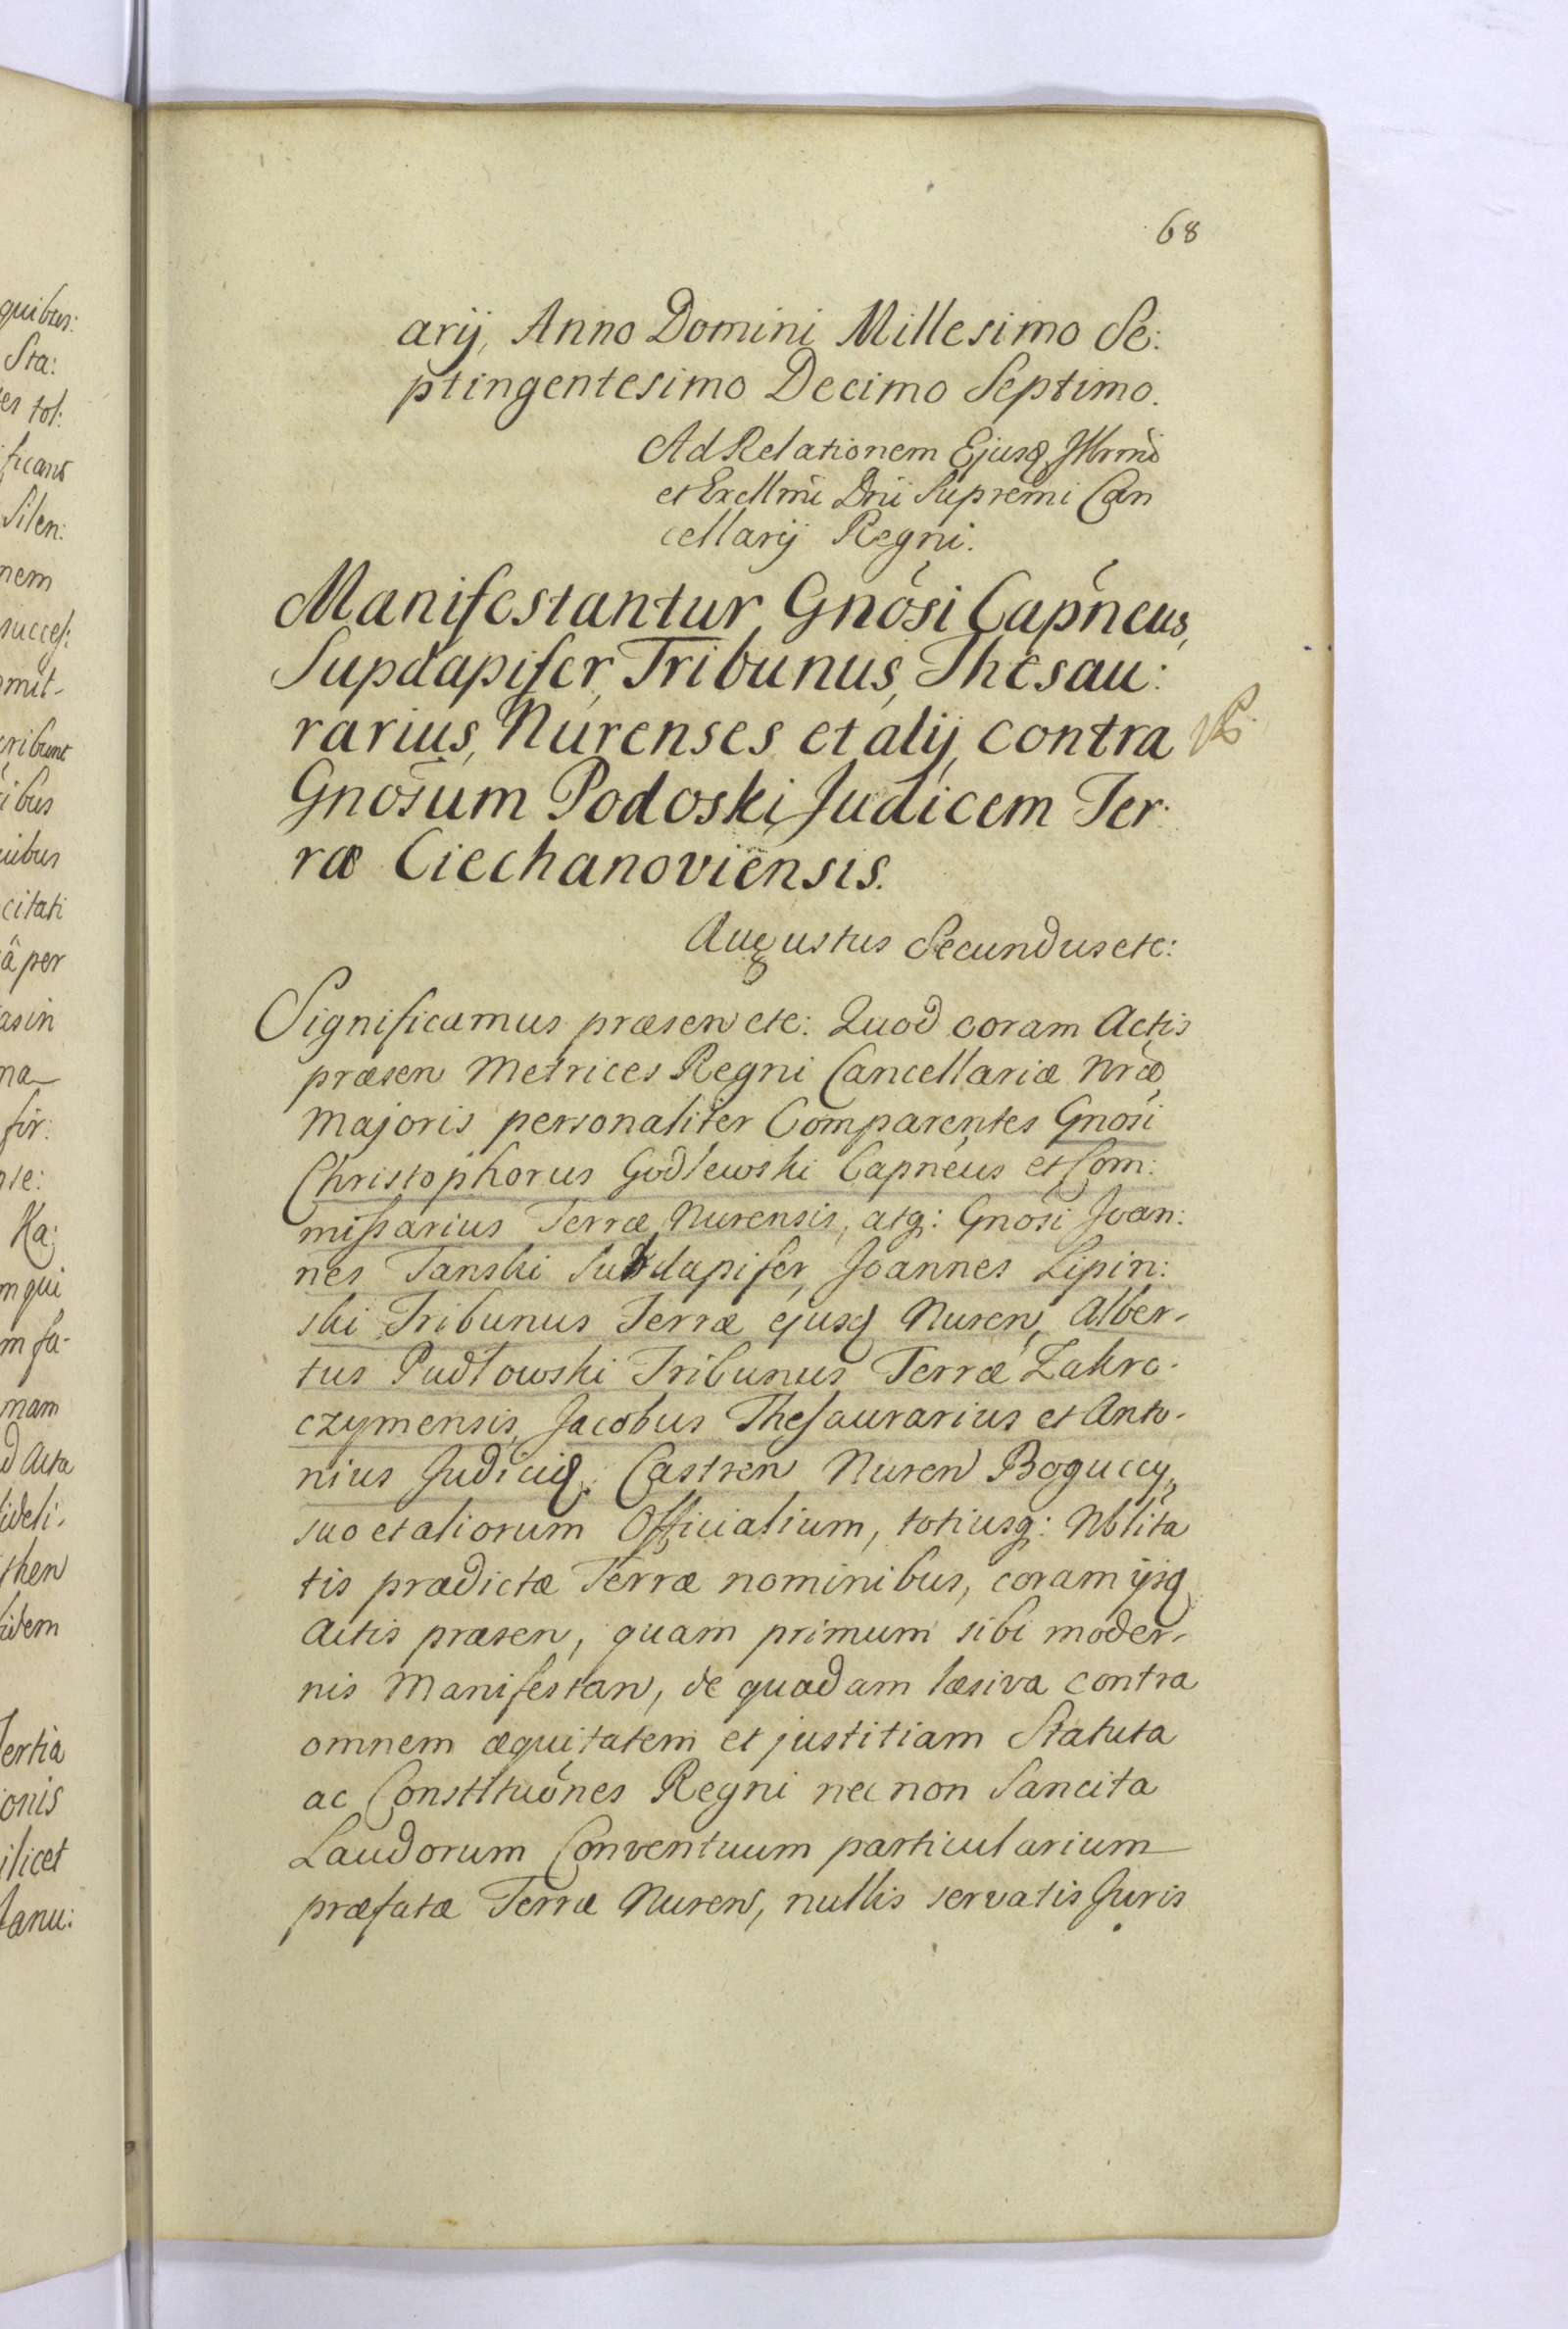 quibus:
Sta:
es tol:
ficans
Silen:
nem
succes:
mit-
cribunt
ibus
uibus
citati
â per
asin
na
for:
nte:
Ka:
m qui
m fa-
mam
d Acta
fideli-
then
idem
Tertia
ionis
ilicet
Janu:
68
arij, Anno Domini Millesimo Se:
ptingentesimo Decimo Septimo.
Ad Relationem Ejusq Illrmi
et Excllmi Dni Supremi Can
cellarij Regni.
Manifestantur Gnosi Capneus,
Supdapifer, Tribunus, Thesau:
rarius, Nurenses et alij, contra
Gnosum Podoski Judicem Ter:
ræ Ciechanoviensis.
Augustus Secundus etc:
Significamus præsen etc: Quod coram Actis
præsen Metrices Regni Cancellariæ Nræ
Majoris personaliter Comparentes Gnosi
Christophorus Godlewski Capneus et Com:
missarius Terræ Nurensis, atq: Gnosi Joan:
nes Tanski Subdapifer, Joannes Lipin:
ski Tribunus Terræ ejusq Nuren, Alber-
tus Pudłowski Tribunus Terræ Zakro-
czymensis, Jacobus Thesaurarius et Anto-
nius Judiciq: Castren Nuren Boguccy,
suo et aliorum Officialium, totiusq: Nblita
tis prædictæ Terræ nominibus, coram ijsq
Actis præsen, quam primum sibi moder-
nis Manifestan, de quadam læsiva contra
omnem æquitatem et justitiam Statuta
ac Constituones Regni nec non Sancita
Laudorum Conventuum particularium
præfatæ Terræ Nuren, nullis servatis Juris